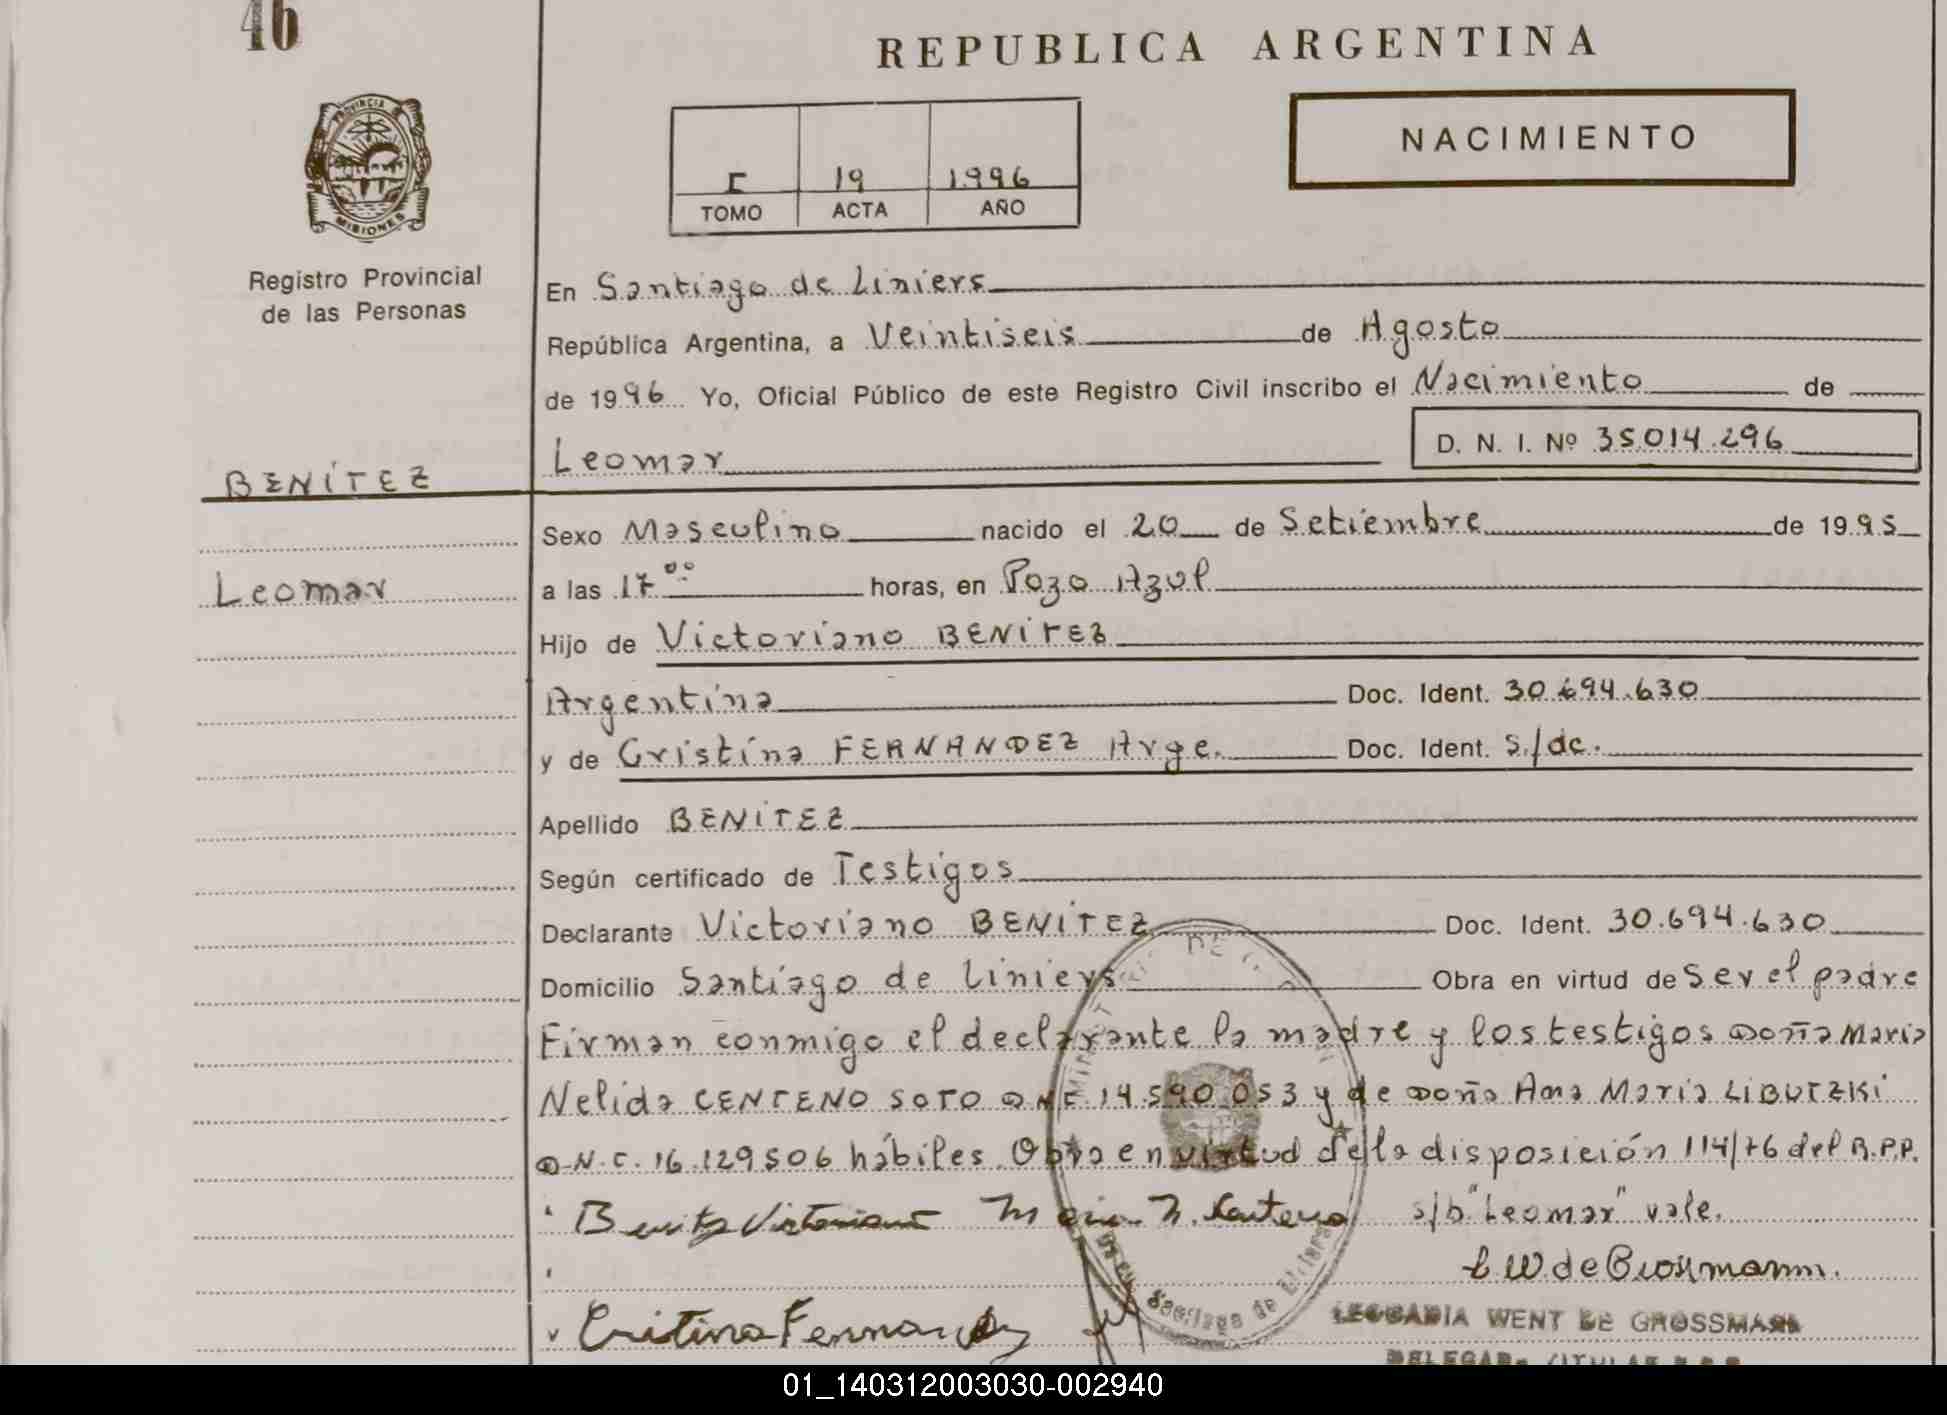 46
REPUBLICA ARGENTINA
PROVINCIA
MISIONES
Registro Provincial
de las Personas
NACIMIENTO
I 19 1996
TOMO ACTA AÑO
En Santiago de Liniers
República Argentina, a Veintiseis de Agosto
de 1996 Yo, Oficial Público de este Registro Civil inscribo el Nacimiento de
Leomar D. N. I. Nº 35.014.296
BENÍTEZ
Leomar
Sexo Masculino nacido el 20 de Setiembre de 1995
a las 17 00 horas, en Pozo Azul
Hijo de Victoriano BENÍTEZ
Argentina Doc. Ident. 30.694.630
y de Cristina FERNANDEZ Arge. Doc. Ident. S./dc.
Apellido BENÍTEZ
Según certificado de Testigos
Declarante Victoriano BENÍTEZ Doc. Ident. 30.694.630
Domicilio Santiago de Liniers Obra en virtud de Ser el padre
Firman conmigo el declarante la madre y los testigos Doña Maria
Nelida CENTENO SOTO D N C 14.590.053 y de Doña Ana Maria LIBUTZKI
D.N.C. 16.129506 hábiles. Obra en virtud de la disposición 114/76 del R.P.P.
Benitez Victoriano Maria N. Centeno s/b "Leomar" vale.
L W de Grossmann.
Cristina Fernandez
Santiago de Liniers
LEOCADIA WENT DE GROSSMANN
01_140312003030-002940